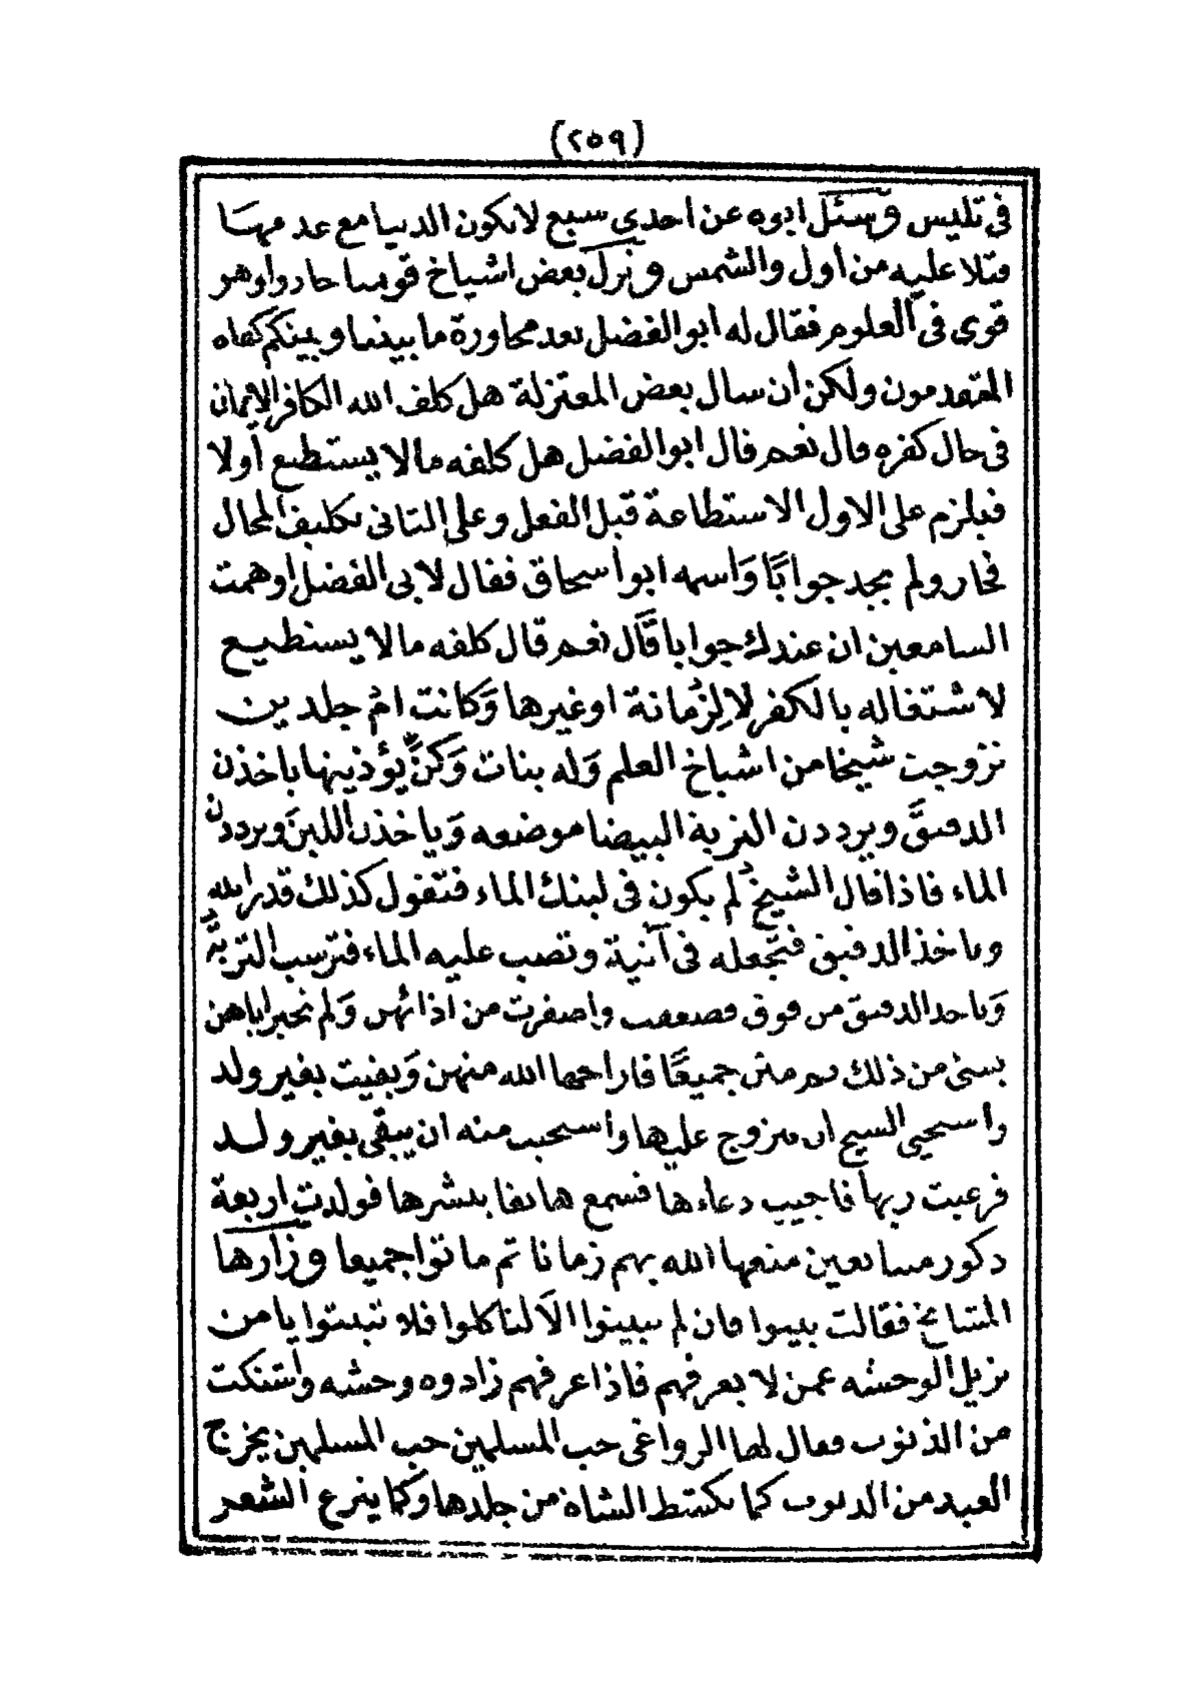 (٢٥٩)
فى تليس وسئل ابوه عن احدى سبع لا تكون الدنيا مع عدمها
فتلا عليه من اول والشمس ونزل بعض اشياخ قومنا جادوا وهو
قوى فى العلوم فقال له ابو الفضل بعد محاورة ما بيننا وبينكم كفاه
المتقدمون ولكن أن سال بعض المعتزلة هل كلف الله الكافر الايمان
فى حال كفره قال نعم قال ابو الفضل هل كلفه ما لا يستطيع أولا
فيلزم على الاول الاستطاعة قبل الفعل وعلى الثانى تكليف المحال
فحار ولم يجد جوابًا وَاسمه ابو اسحاق فقال لابى الفضل اوهمت
السامعين ان عندك جوابا قَال نعم قال كلفه ما لا يستطيع
لاشتغاله بالكفر لا لِزمانة او غيرها وَكانت امُ جلدين
تزوجت شيخا من اشياخ العلم وَله بنات وَكنّ يؤذينها ياخذن
الدقيقَ ويرددن التربة البيضا موضعه وَياخذن اللبنَ ويرددن
الماء فاذا قال الشيخُ لم يكون فى لبنك الماء فتقول كذلك قدر الله
وتاخذ الدقيق فتجعله فى آنية وتصب عليه الماء فترسب التربةُ
وَتاخذ الدقيق من فوق فضعفت واصفرت من اذائهن وَلم تخبر اباهن
بشئ من ذلك ثم متن جميعًا فاراحها الله منهن وَبقيت بغير ولد
واستحيى الشيخ ان يتزوج عليها واستحيت منه ان يبقى بغير ولد
فرغبت ربها فاجيب دعاءها فسمع هاتفا بشرها فولدت اربعة
ذكور متتابعين متعها الله بهم زمانا ثم ماتوا جميعا وزارها
المشائخ فقالت بيتوا فان لم تبيتوا الا لتاكلوا فلا تبيتوا يا من
نزيل الوحشه عمن لا يعرفهم فاذا عرفهم زادوه وحشه واشتكت
من الذنوب فقال لها الرواغى حب المسلمين حب المسلمين يخرج
العبد من الذنوب كما تكشط الشاة من جلدها وكما ينزع الشعر